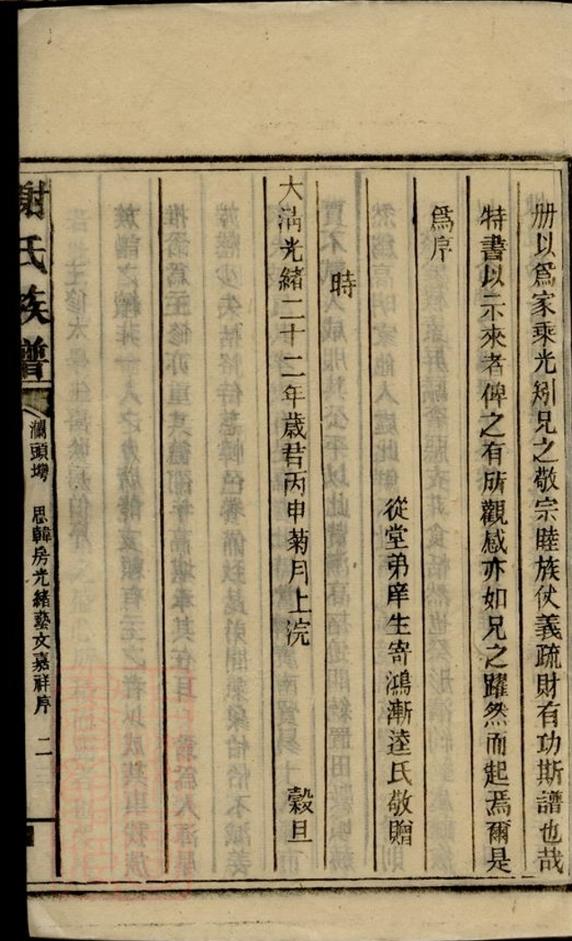 册以爲家乘光矧兄之敬宗睦族仗義疏財有功斯譜也哉
特書以示來者俾之有所觀感亦如兄之躍然而起焉爾是
爲序
從堂弟庠生寄鴻漸逵氏敬贈
時
大淸光緒二十二年歲君丙申菊月上浣
穀旦
謝氏族譜
瀾頭灣
思韓房光緒藝文嘉祥序
二